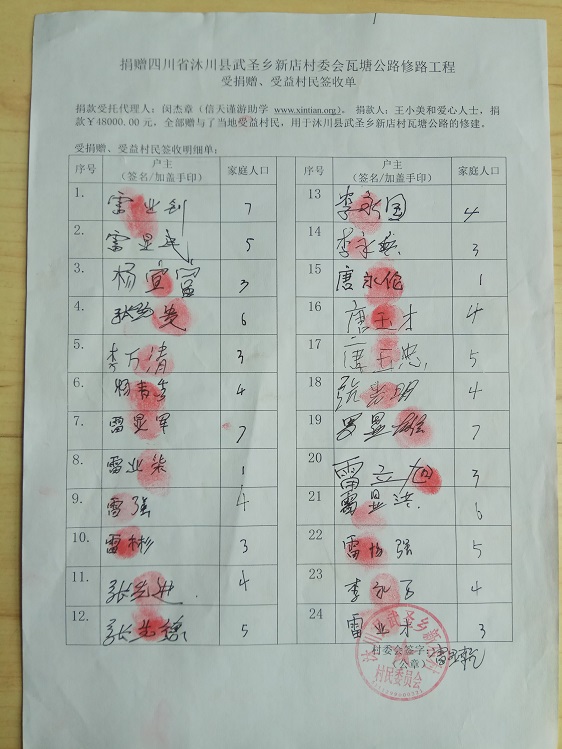 捐赠四川省沐川县武圣乡新店村委会瓦塘公路修路工程
受捐赠、受益村民签收单
捐款受托代理人：闵杰章（信天谨游助学 www.xintian.org），捐款人：王小美和爱心人士，捐
款￥48000.00 元。全部赠与了当地受益村民，用于沐川县武圣乡新店村瓦塘公路的修建。
受捐赠、受益村民签收明细单：
序号 户主（签名/加盖手印） 家庭人口 序号 户主（签名/加盖手印） 家庭人口
1. 雷业钊 7
2. 雷显武 5
3. 杨宜富 3
4. 6
5. 李万清 3
6. 4
7. 雷显军 7
8. 雷业柒 1
9. 雷强 4
10. 雷彬 3
11. 张先进 4
12. 张先德 5
13 李永国 4
14 李永 3
15 唐永伦 1
16 唐玉才 4
17 唐玉忠 5
18 张光明 4
19 罗显 7
20 雷立旭 3
21 雷显洪 6
22 雷 强 5
23 李永 4
24 雷业木 3
村委会签字：
（公章）
沐川县武圣乡新店村
村民委员会